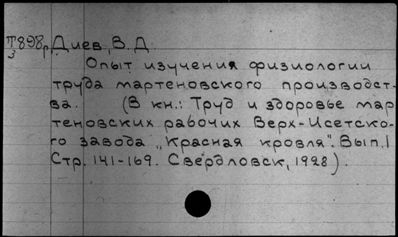 Т898р Диев, В. Д.
3
Опыт изучения физиологии
труда мартеновского производст-
ва. (В кн.: Труд и здоровье мар
теновских рабочих Верх-Исетско-
го завода „Красная кровля". Вып.1
Стр. 141-169. Свердловск, 1928).